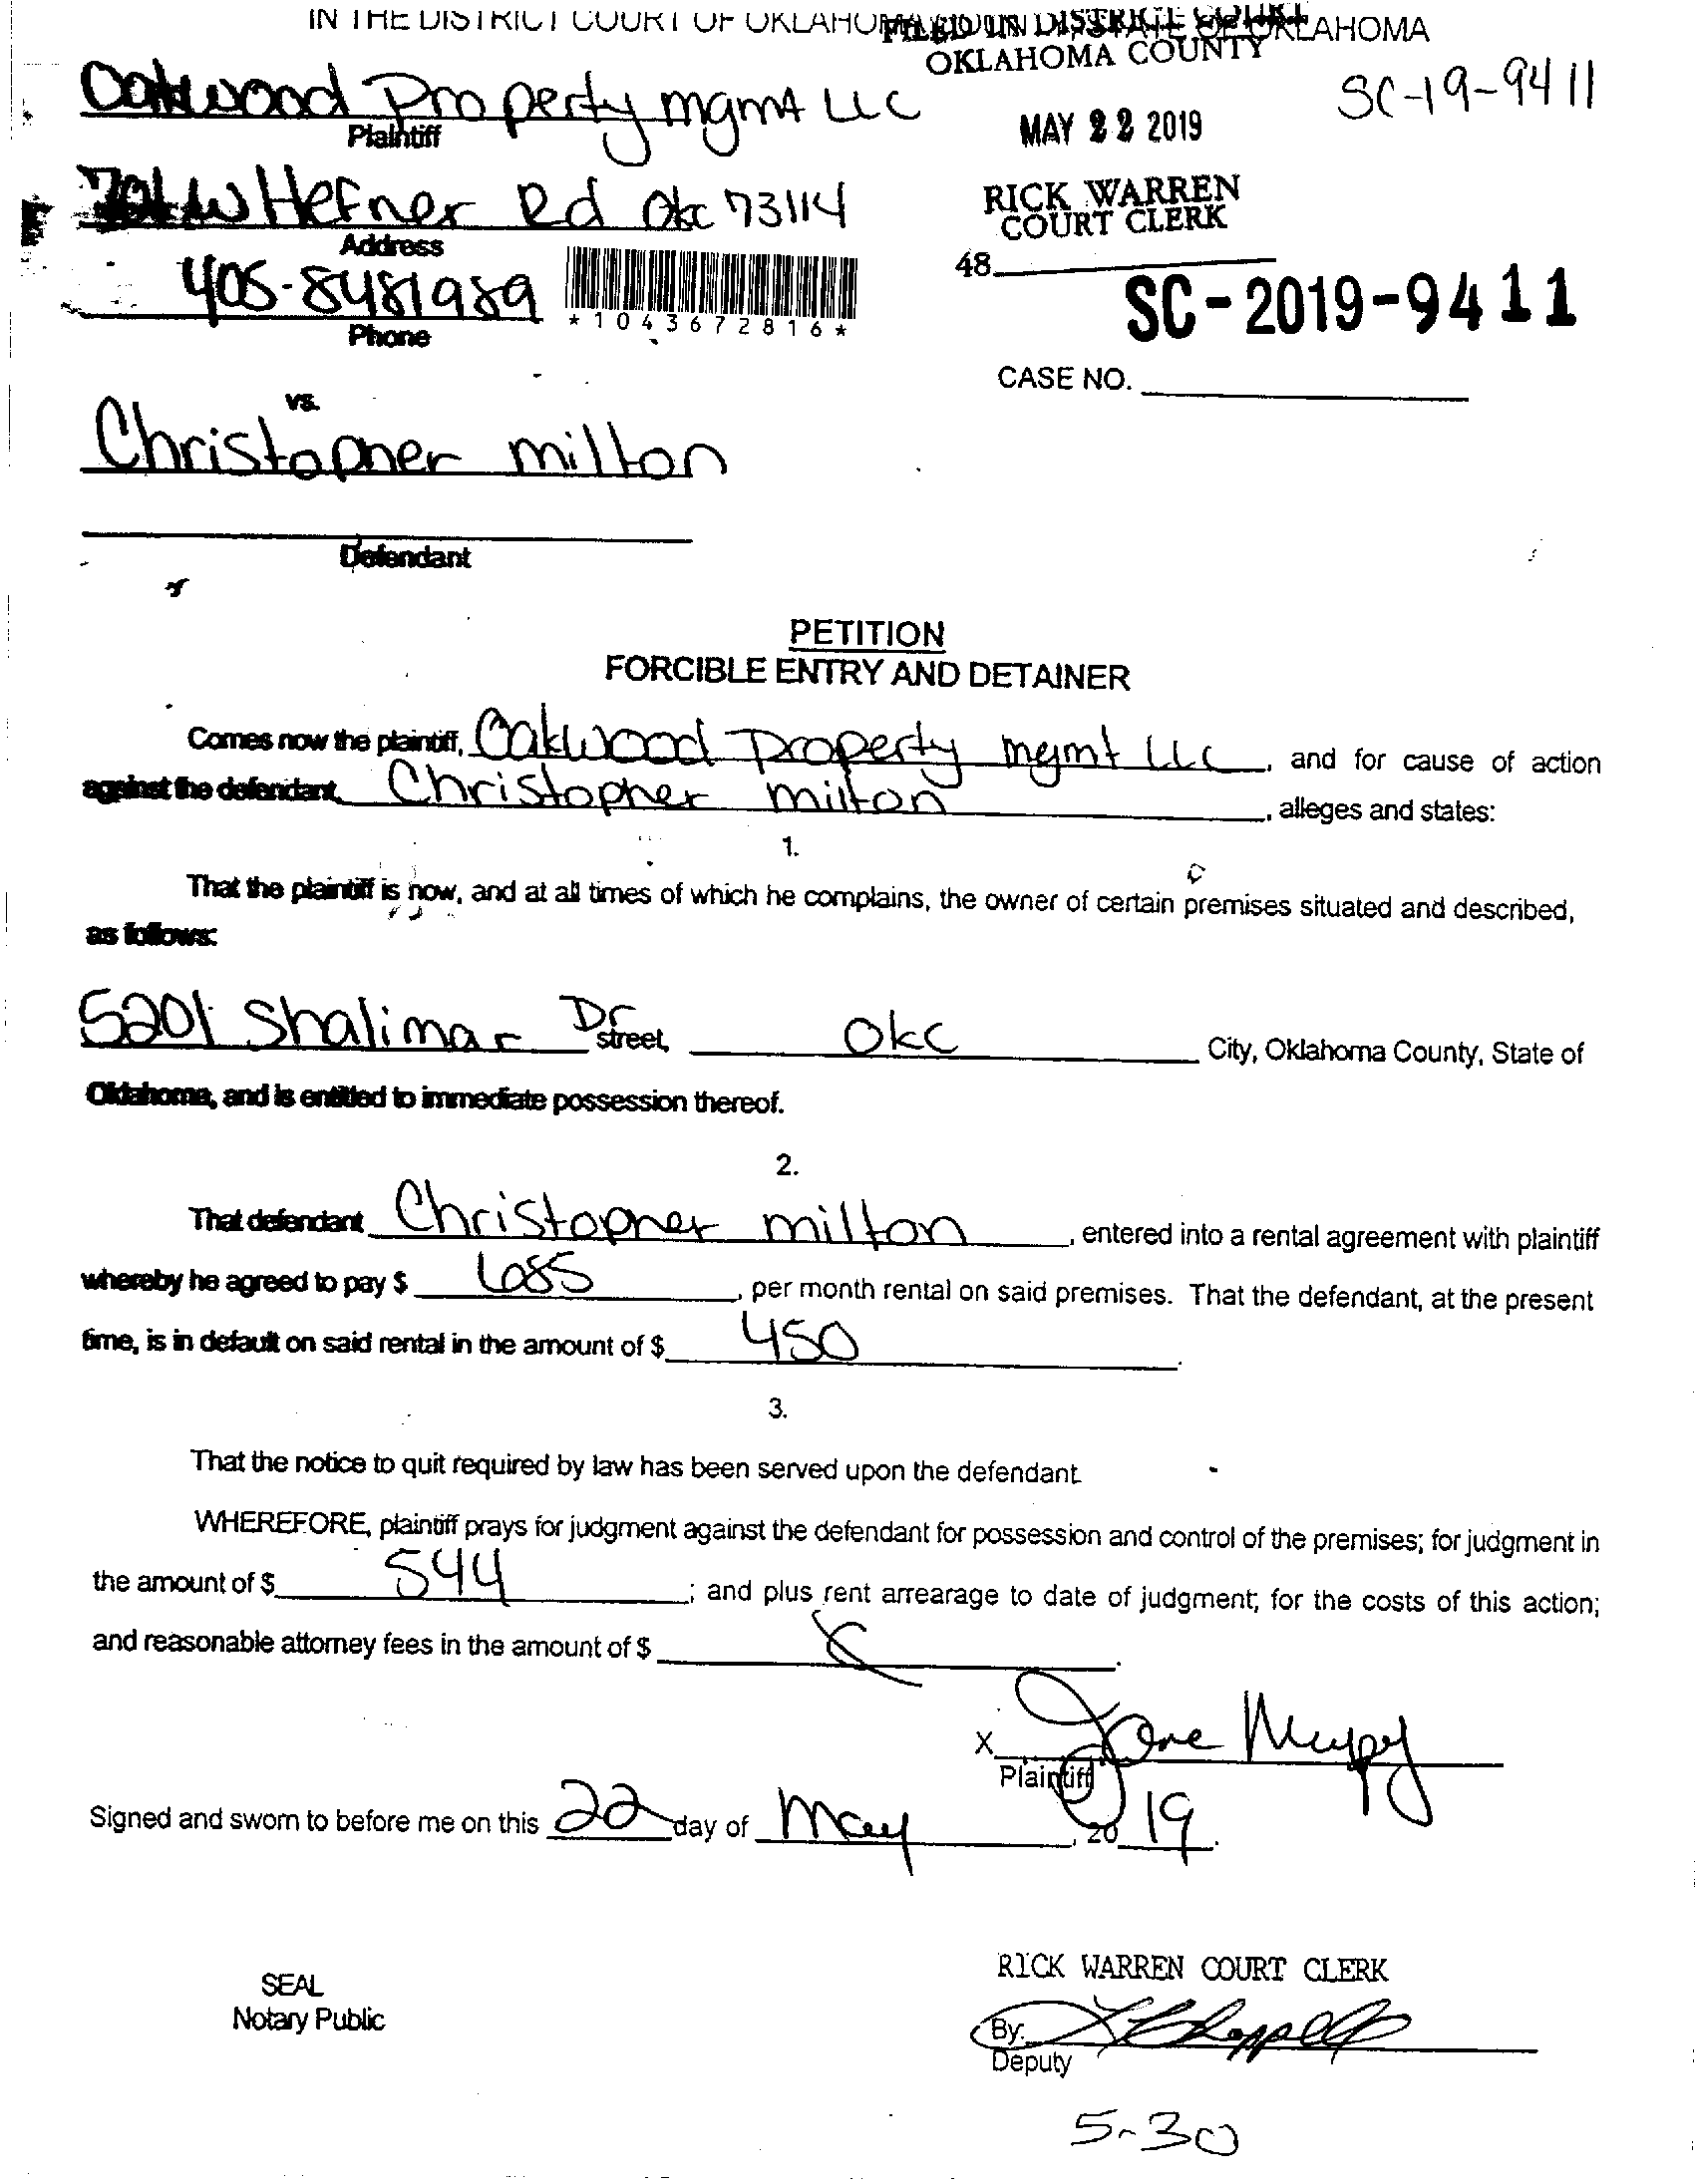 IN THE DISTRICT COURT OF OKLAHOMA COUNTY, STATE OF OKLAHOMA
FILED IN DISTRICT COURT
OKLAHOMA COUNTY
SC-19-9411
Oakwood Property mgmt LLC
Plaintiff
MAY 22 2019
W Hefner Rd Okc 73114
Address
RICK WARREN
COURT CLERK
48
405-8481989
Phone
*1043672816*
SC-2019-9411
CASE NO.
vs.
Christopher milton
Defendant
PETITION
FORCIBLE ENTRY AND DETAINER
Comes now the plaintiff, Oakwood Property mgmt LLC, and for cause of action
against the defendant, Christopher milton, alleges and states:
1.
That the plaintiff is now, and at all times of which he complains, the owner of certain premises situated and described,
as follows:
5201 Shalimar Dr street, Okc City, Oklahoma County, State of
Oklahoma, and is entitled to immediate possession thereof.
2.
That defendant Christopher milton, entered into a rental agreement with plaintiff
whereby he agreed to pay $ 685, per month rental on said premises. That the defendant, at the present
time, is in default on said rental in the amount of $ 450.
3.
That the notice to quit required by law has been served upon the defendant.
WHEREFORE, plaintiff prays for judgment against the defendant for possession and control of the premises; for judgment in
the amount of $ 544; and plus rent arrearage to date of judgment; for the costs of this action;
and reasonable attorney fees in the amount of $ .
X
Plaintiff
Signed and sworn to before me on this 22 day of May, 20 19.
SEAL
Notary Public
RICK WARREN COURT CLERK
By:
Deputy
5-30